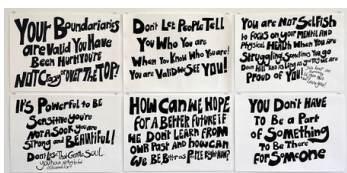 Your Boundariaries
are Valid You Have
Been Hurt You're
NOT Crazy or OVER THE TOP!
Don't Let People Tell
You Who You are
When You Know Who You are!
You are Valid We See YOU!
You are Not Selfish
to Focus on your MENTAL AND
Physical Health When You Are
Struggling
PROUD OF YOU
It's Powerful to BE
Sensitive You're
Not A Sook You are
Strong and BEAUTIFUL!
Don't Lose That Gentle SOUL
HOW CAN WE HOPE
FOR A BETTER FUTURE IF
WE DON'T LEARN FROM
OUR PAST and HOW CAN
WE BE Better as PEOPLE Right Now?
YOU DON'T HAVE
TO BE a Part
of Something
To Be There
FOR SOMEONE